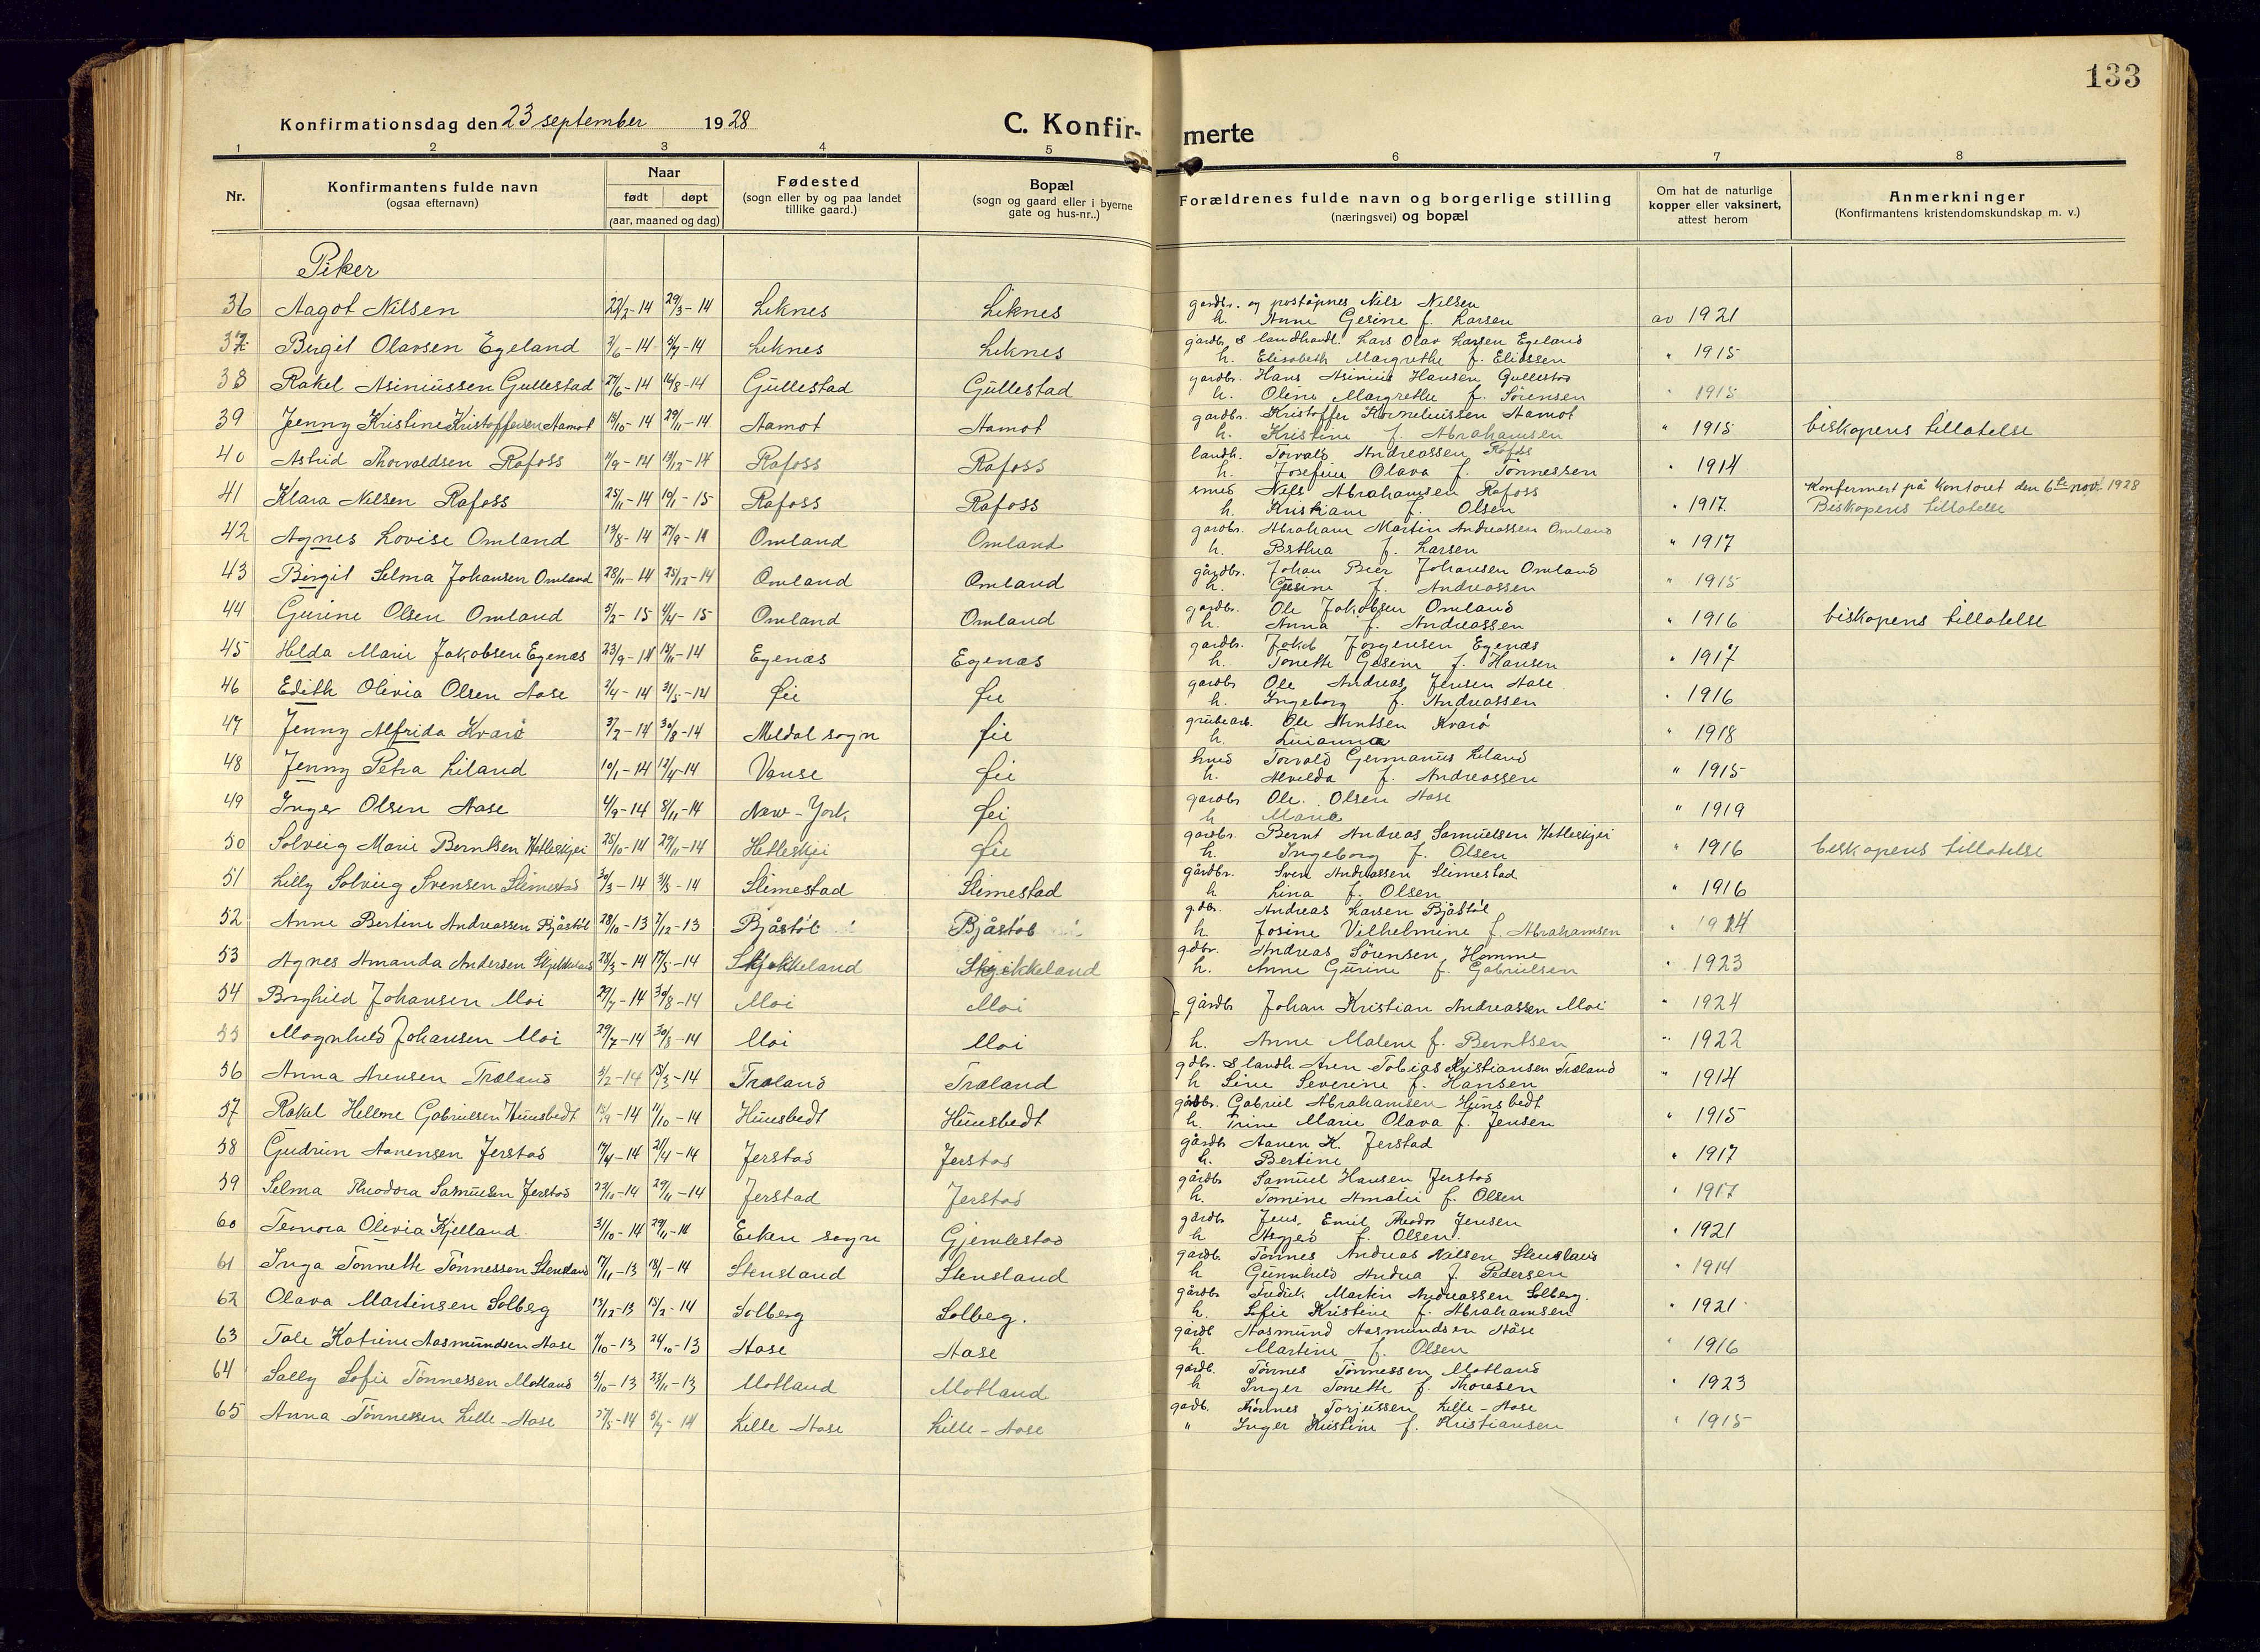 133
Konfirmationsdag den 23 september 1928
C. Konfir-merte
1 2 3 4 5 6 7 8
Nr.
Konfirmantens fulde navn
(ogsaa efternavn)
Naar
født døpt
(aar, maaned og dag)
Fødested
(sogn eller by og paa landet
tillike gaard.)
Bopæl
(sogn og gaard eller i byerne
gate og hus-nr..)
Forældrenes fulde navn og borgerlige stilling
(næringsvei) og bopæl
Om hat de naturlige
kopper eller vaksinert,
attest herom
Anmerkninger
(Konfirmantens kristendomskundskap m. v.)
Piker
36 Aagot Nilsen 22/2-14 29/3-14 Liknes Liknes gardbr. og poståpnes Nils Nilsen
h. Anne Gesine f. Larsen av 1921
37 Birgit Olavsen Egeland 2/6-14 5/7-14 Liknes Liknes gårdbr. & landhandl. Lars Olav Larsen Egeland
h. Elisabeth Margrethe f. Eliassen " 1915
38 Rakel Asiniussen Gullestad 27/6-14 16/8-14 Gullestad Gullestad gardbr. Hans Asinius Hansen Gullestad
h. Oline Margrethe f. Sørensen " 1915
39 Jenny Kristine Kristoffersen Aamot 18/10-14 29/11-14 Aamot Aamot gardbr. Kristoffer Korneliussen Aamot
h. Kristine f. Abrahamsen " 1915 biskopens tillatelse
40 Astrid Thorvaldsen Rafoss 11/9-14 13/12-14 Rafoss Rafoss landh. Torvald Andreassen Rafoss
h. Josefine Olava f. Tönnessen " 1914
41 Klara Nilsen Rafoss 25/11-14 10/1-15 Rafoss Rafoss smed Nils Abrahamsen Rafoss
h. Kristiane f. Olsen " 1917. Konfirmert på kontoret den 6te nov. 1928
Biskopens tillatelse
42 Agnes Lovise Omland 13/8-14 27/9-14 Omland Omland gardbr. Abraham Martin Andreassen Omland
h. Berthea f. Larsen " 1917
43 Birgit Selma Johansen Omland 28/11-14 25/12-14 Omland Omland gårdbr. Johan Beer Johansen Omland
h. Gusine f. Andreassen " 1915
44 Gurine Olsen Omland 5/2-15 4/4-15 Omland Omland gardbr. Ole Jakobsen Omland
h. Anna f. Andreassen " 1916 biskopens tillatelse
45 Hilda Marie Jakobsen Egenæs 23/9-14 15/11-14 Egenæs Egenæs gardbr. Jakob Jørgensen Egenæs
h. Tonette Gesine f. Hansen " 1917
46 Edith Olivia Olsen Aase 2/4-14 31/5-14 Fie Fie gardbr Ole Andreas Jensen Aase
h. Ingeborg f. Andreassen " 1916
47 Jenny Alfrida Kvarö 3/2-14 30/8-14 Meldal sogn Fie grubearb. Ole Arntsen Kvarö
h. Luianna " 1918
48 Jenny Petra Liland 10/1-14 12/4-14 Vanse Fie Smed Torvald Germanus Liland
h. Alvilda f. Andreassen " 1915
49 Inger Olsen Aase 4/9-14 8/11-14 New-York Fei gardbr Ole Olsen Aase
h Marie " 1919
50 Solveig Marie Berntsen Hetleskjei 25/10-14 29/11-14 Hetleskjei Fie gardbr. Bernt Andreas Samuelsen Hetleskjei
h. Ingeborg f. Olsen " 1916 biskopens tillatelse
51 Lilly Solveig Svensen Slimestad 30/3-14 3/5-14 Slimestad Slimestad gårdbr. Sven Andreassen Slimestad
h Lina f. Olsen " 1916
52 Anne Bertine Andreassen Bjåstöl 28/10-13 7/12-13 Bjåstöl Bjåstöl g.dbr. Andreas Larsen Bjåstöl
h. Josine Vilhelmine f. Abrahamsen " 1914
53 Agnes Amanda Andersen Skjekkeland 28/3-14 17/5-14 Skjekkeland Skjekkeland gdbr. Andreas Sörensen Homme
h. Anne Gurine f. Gabrielsen " 1923
54 Borghild Johansen Moi 29/7-14 30/8-14 Moi Moi gårdb Johan Kristian Andreassen Moi " 1924
55 Magnhild Johansen Moi 29/7-14 30/8-14 Moi Moi h. Anne Malene f. Berntsen " 1922
56 Anna Arensen Træland 5/2-14 15/3-14 Træland Træland gdbr. & landh. Aren Tobias Kristiansen Træland
h Line Severine f. Hansen " 1914
57 Rakel Hellene Gabrielsen Hunsbedt 15/9-14 11/10-14 Hunsbedt Hunsbedt gårdbr. Gabriel Abrahamsen Hunsbedt
h. Trine Marie Olava f. Jensen " 1915
58 Gudrun Aanensen Jerstad 17/4-14 21/4-14 Jerstad Jerstad gårdb Aanen K. Jerstad
h. Bertine " 1917
59 Selma Theodora Samuelsen Jerstad 23/10-14 29/11-14 Jerstad Jerstad gårdb Samuel Hansen Jerstad
h. Tomine Amalie f. Olsen " 1917
60 Temora Olivia Kjelland. 31/10-14 29/11-14 Eiken sogn Gjemlestad gårdb Jens. Emil Theodor Jensen
h f. Olsen. " 1921
61 Inga Tönnette Tönnessen Stensland 17/11-13 18/1-14 Stensland Stensland gardb. Tönnes Andreas Nilsen Stensland
h Gunnhild Andrea f. Pedersen " 1914
62 Olava Martinsen Solberg 13/12-13 15/2-14 Solberg Solbeg. gårdbr Fredrik Martin Andreassen Solberg.
h. Sofie Kristine f. Abrahamsen " 1921
63 Tale Katrine Aasmundsen Aase 11/10-13 24/10-13 Aase Aase gårdb Aasmund Aasmundsen Aåse
h. Martine f. Olsen " 1916
64 Sally Sofie Tönnessen Motland 5/10-13 23/11-13 Motland Motland gardb. Tönnes Tönnessen Motland
h Inger Tonette f. Thoresen " 1923
65 Anna Tönnessen Lille-Aase 27/5-14 5/7-14 Lille-Aase Lille-Aase gadb. Tönnes Torjussen Lille-Aase
" Inger Kristine f. Kristiansen " 1915